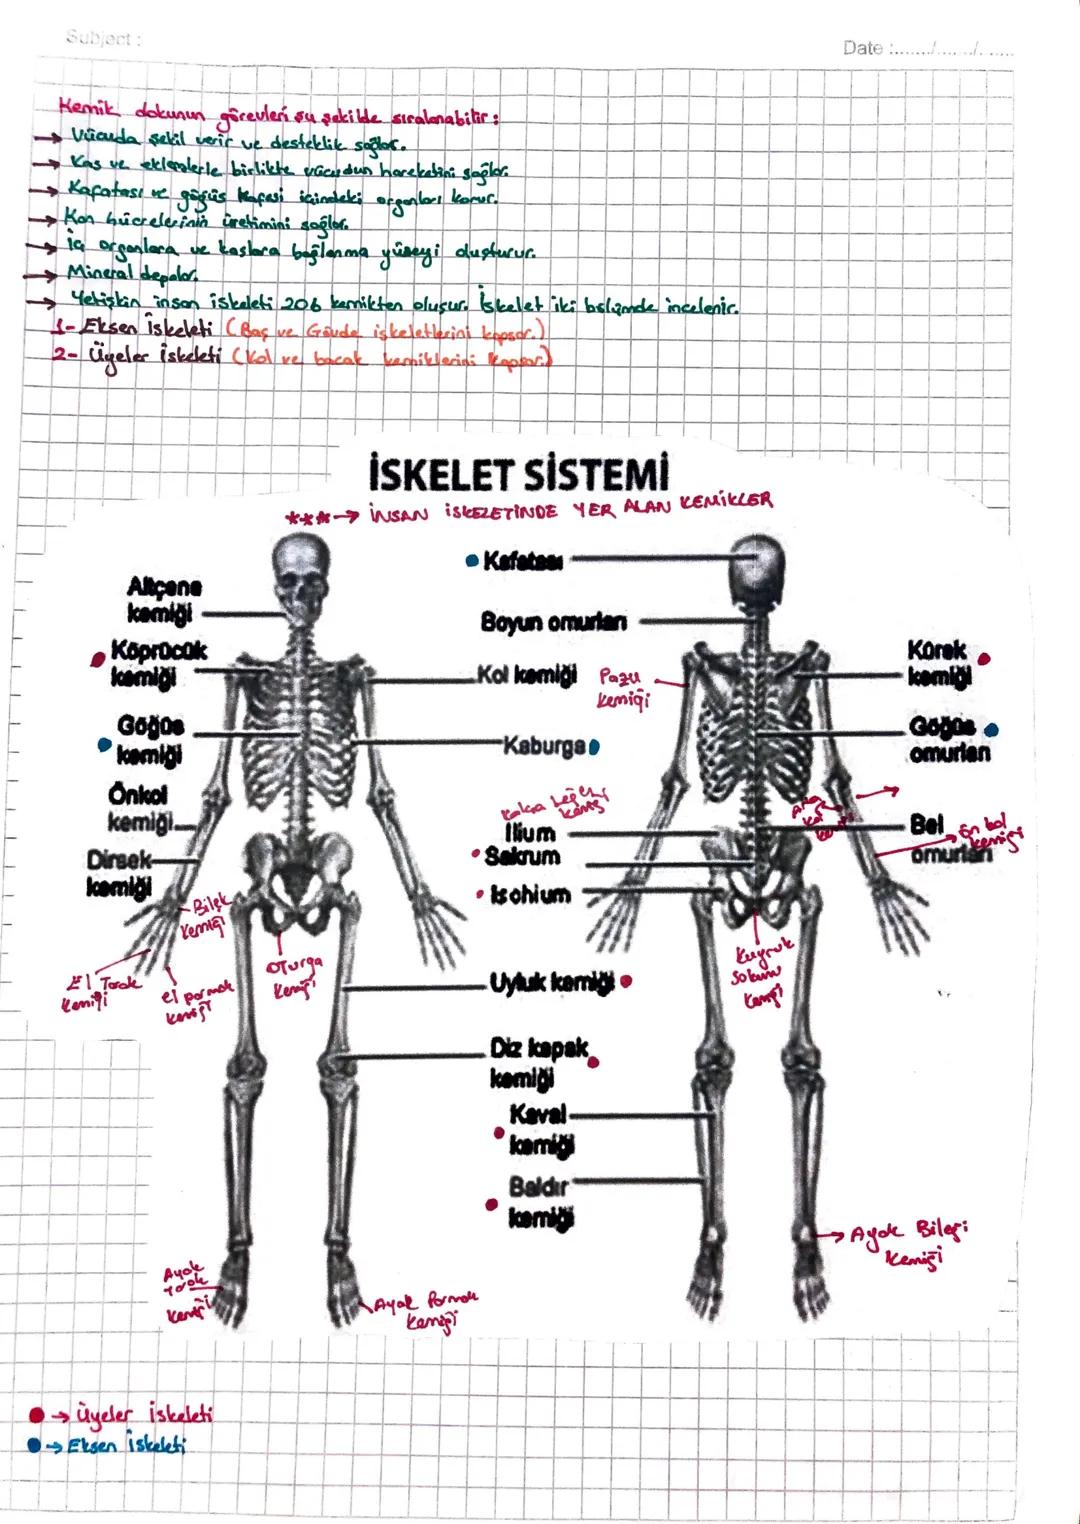 Subject :
Date :......./......./.......
Kemik dokunun görevleri şu şekilde sıralanabilir :
→ Vücuda şekil verir ve desteklik sağlar.
→ Kas ve eklemlerle birlikte vücudun hareketini sağlar.
→ Kafatası ve göğüs kafesi içindeki organları korur.
→ Kan hücrelerinin üretimini sağlar.
→ İç organlara ve kaslara bağlanma yüzeyi oluşturur.
→ Mineral depolar.
→ Yetişkin insan iskeleti 206 kemikten oluşur. İskelet iki bölümde incelenir.
1- Eksen iskeleti (Baş ve Gövde iskeletlerini kapsar.)
2- Üyeler iskeleti (Kol ve bacak kemiklerini kapsar.)
İSKELET SİSTEMİ
***→ İNSAN İSKELETİNDE YER ALAN KEMİKLER
Kafatası
Altçene
kemiği
Boyun omurları
Köprücük
kemiği
Kürek
kemiği
Kol kemiği
Pazu
kemiği
Göğüs
kemiği
Göğüs
omurları
Kaburga
Önkol
kemiği
kalça
Ilium
Bel
omurları
Ön kol
kemiği
Sakrum
Dirsek
kemiği
Ischium
Bilek
kemiği
Oturga
kemiği
Kuyruk
sokumu
kemiği
El Tarak
kemiği
el parmak
kemiği
Uyluk kemiği
Diz kapak
kemiği
Kaval
kemiği
Baldır
kemiği
→ Ayak Bileği
kemiği
Ayak
Tarak
kemiği
Ayak Parmak
kemiği
→ Üyeler iskeleti
→ Eksen iskeleti